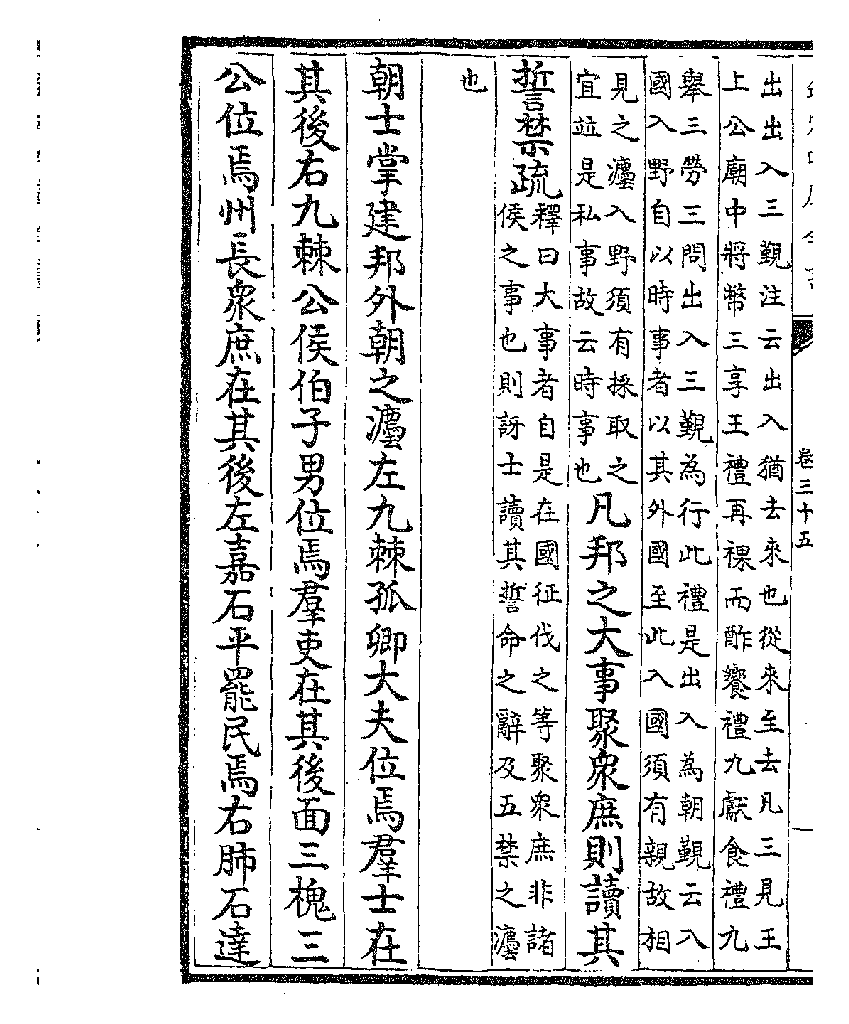 卷三十五
出出入三覲注云出入猶去來也從來至去凡三見王
上公廟中將幣三享王禮再祼而酢饗禮九獻食禮九
舉三勞三問出入三覲為行此禮是出入為朝覲云入
國入野自以時事者以其外國至此入國須有親故相
見之灋入野須有採取之
宜竝是私事故云時事也
凡邦之大事聚衆庶則讀其
誓禁疏
釋曰大事者自是在國征伐之等聚衆庶非諸
侯之事也則訝士讀其誓命之辭及五禁之灋
也
朝士掌建邦外朝之灋左九棘孤卿大夫位焉羣士在
其後右九棘公侯伯子男位焉羣吏在其後面三槐三
公位焉州長衆庶在其後左嘉石平罷民焉右肺石達